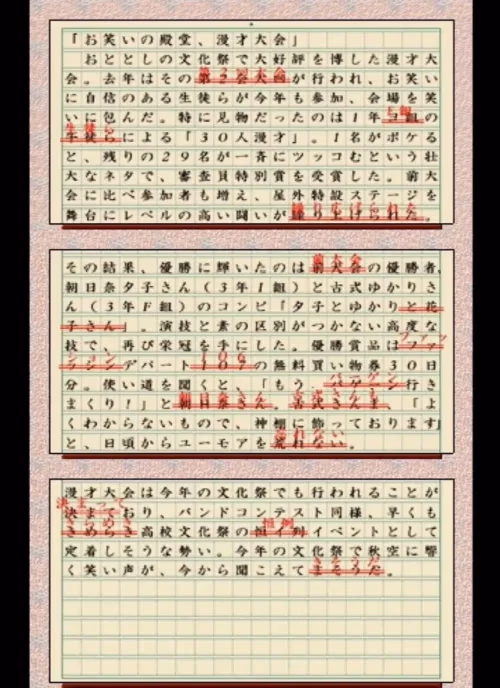 「お笑いの殿堂、漫才大会」
おととしの文化祭で大好評を博した漫才大
会。去年はその第2回大会が行われ、お笑い
に自信のある生徒らが今年も参加、会場を笑
いに包んだ。特に見物だったのは1年 の
生徒らによる「30人漫才」。1名がボケる
と、残りの29名が一斉にツッコむという壮
大なネタで、審査員特別賞を受賞した。前大
会に比べ参加者も増え、屋外特設ステージを
舞台にレベルの高い闘いが繰り広げられた。
その結果、優勝に輝いたのは前大会の優勝者、
朝日奈夕子さん(3年I組)と古式ゆかりさ
ん(3年F組)のコンビ「夕子とゆかりと花
子さん」。演技と素の区別がつかない高度な
技で、再び栄冠を手にした。優勝賞品はファッ
ションデパート109の無料買い物券30日
分。使い道を聞くと、「もう、バーゲン行き
まくり!」と朝日奈さん。古式さんも、「よ
くわからないもので、神棚に飾っております」
と、日頃からユーモアを忘れない。
漫才大会は今年の文化祭でも行われることが
決まっており、バンドコンテスト同様、早くも
きらめき高校文化祭の恒例イベントとして
定着しそうな勢い。今年の文化祭で秋空に響
く笑い声が、今から聞こえてきそうだ。